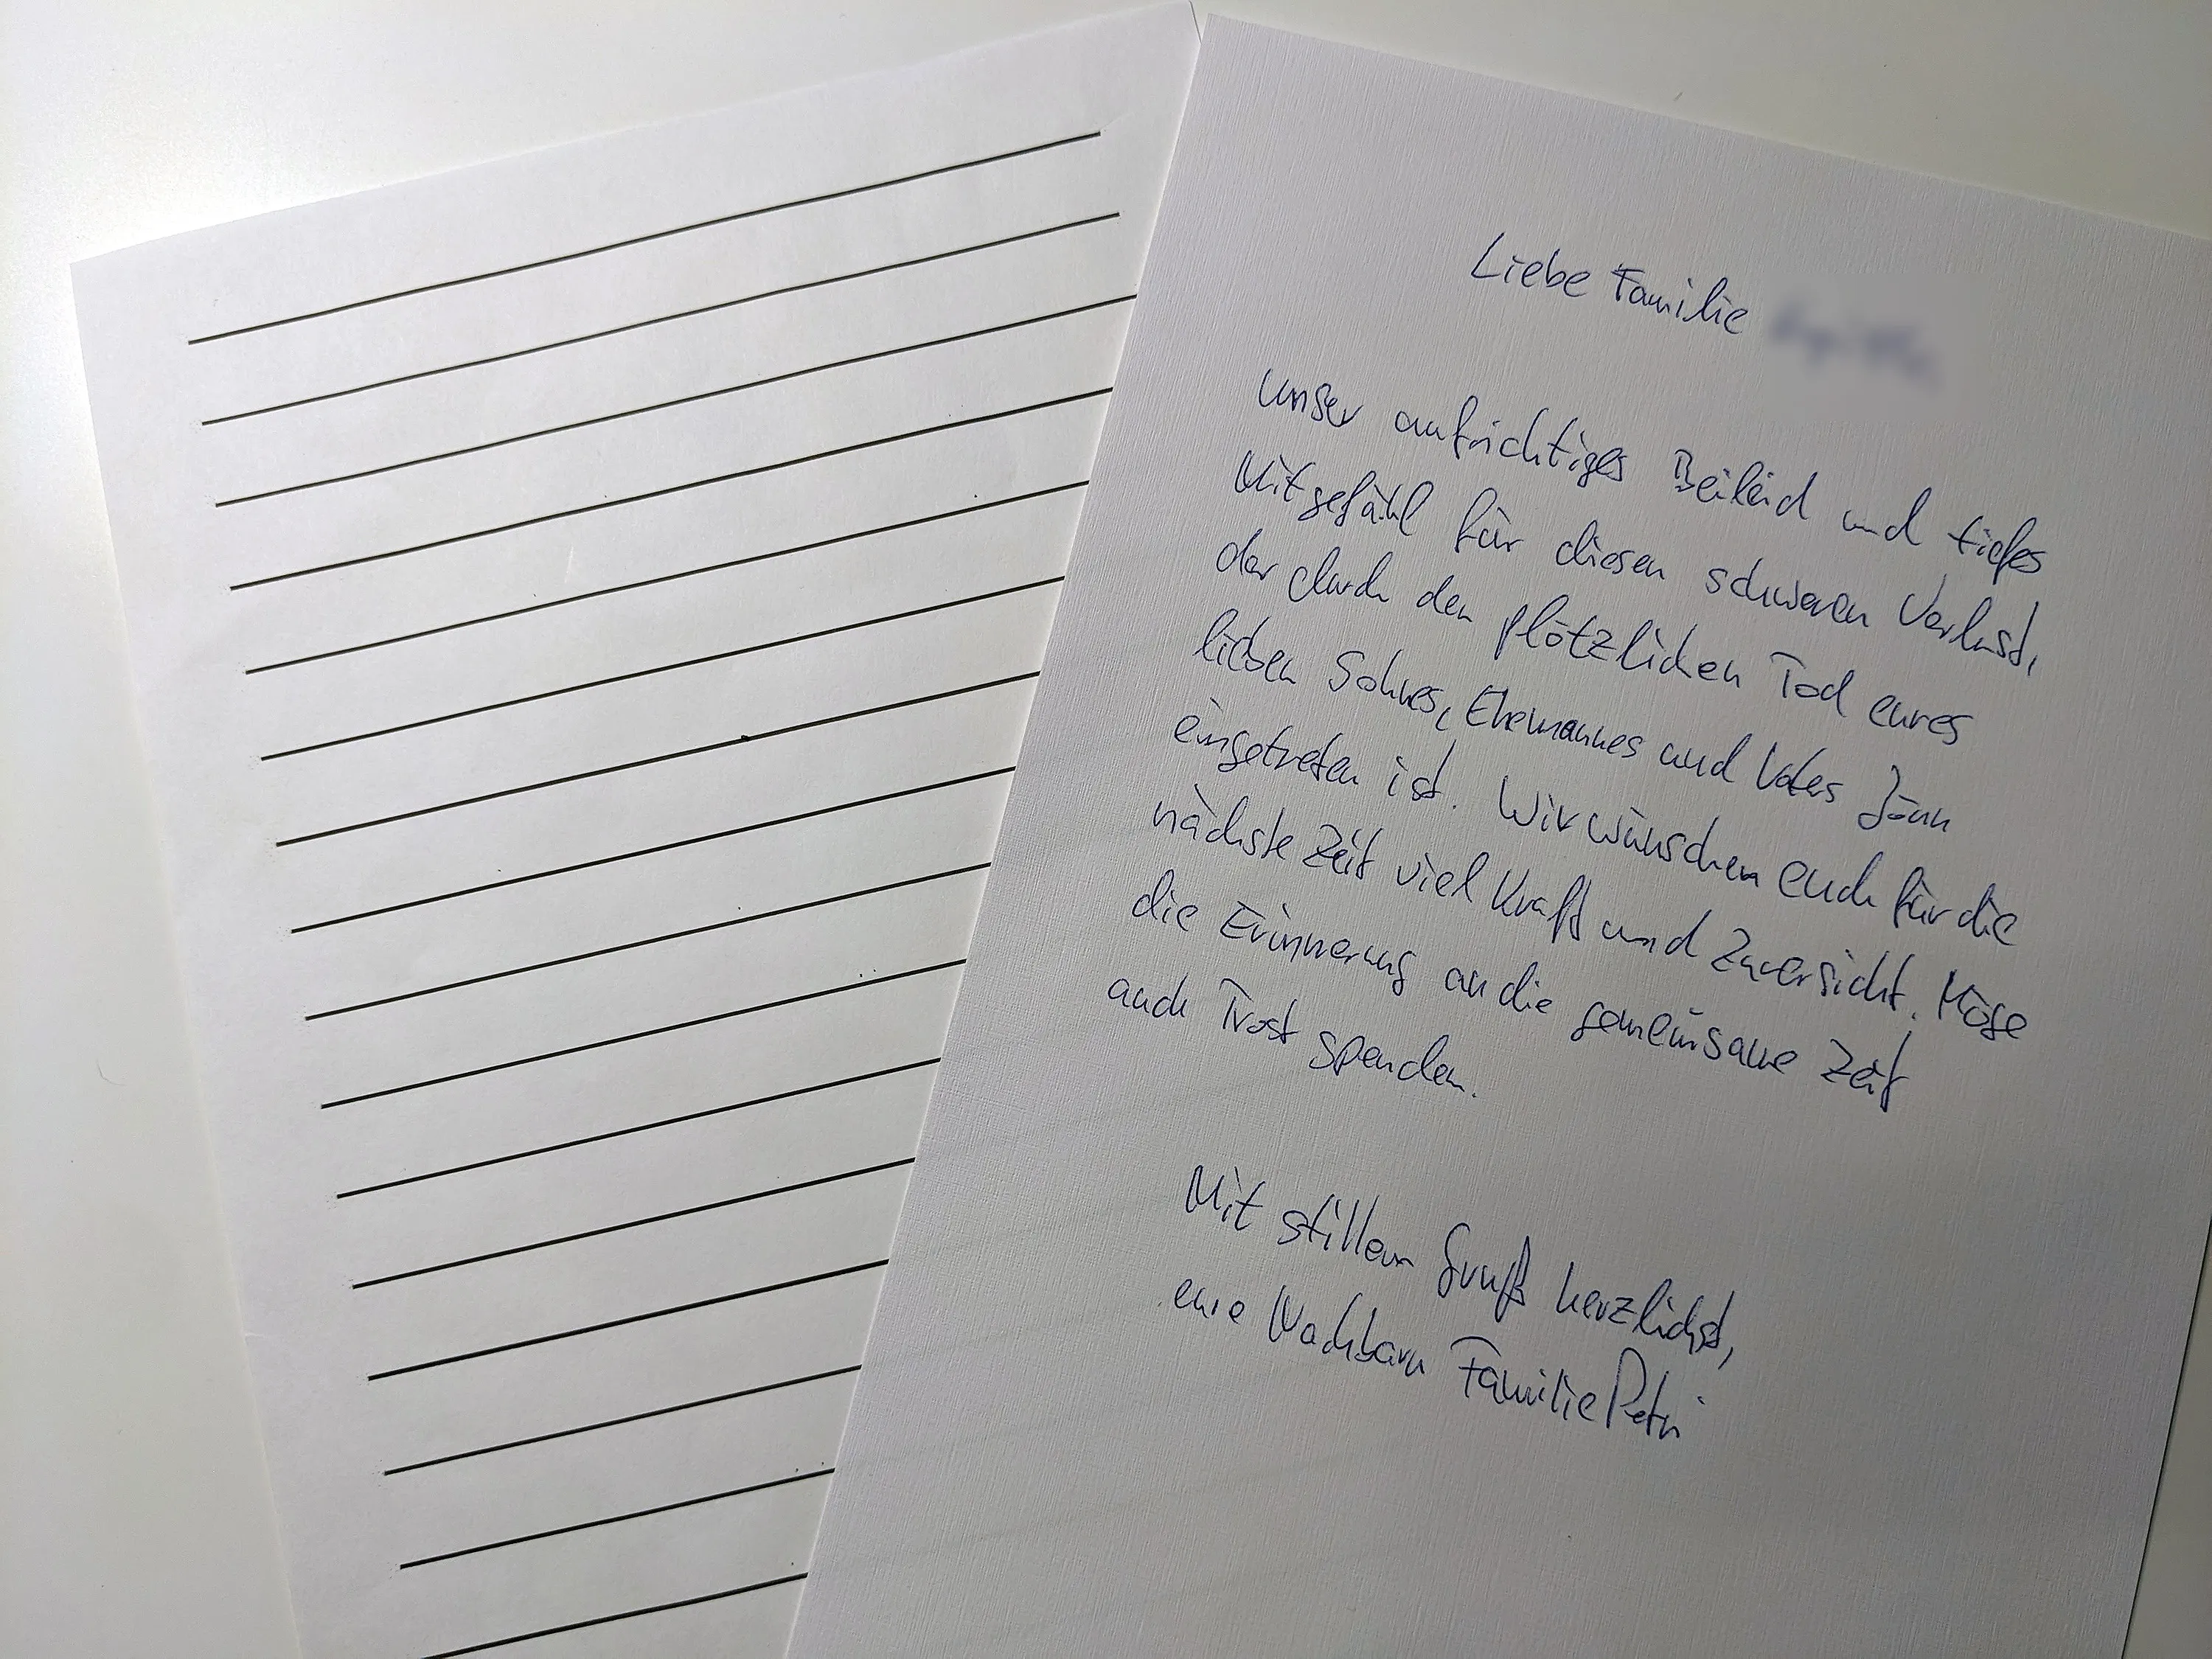 Liebe Familie
unser aufrichtiges Beileid und tiefes
Mitgefühl für diesen schweren Verlust,
der durch den plötzlichen Tod eures
lieben Sohnes, Ehemannes und Vaters Jönn
eingetreten ist. Wir wünschen euch für die
nächste Zeit viel Kraft und Zuversicht. Möge
die Erinnerung an die gemeinsame Zeit
auch Trost spenden.
Mit stillem Gruß herzlichst,
eure Nachbarn Familie Petri